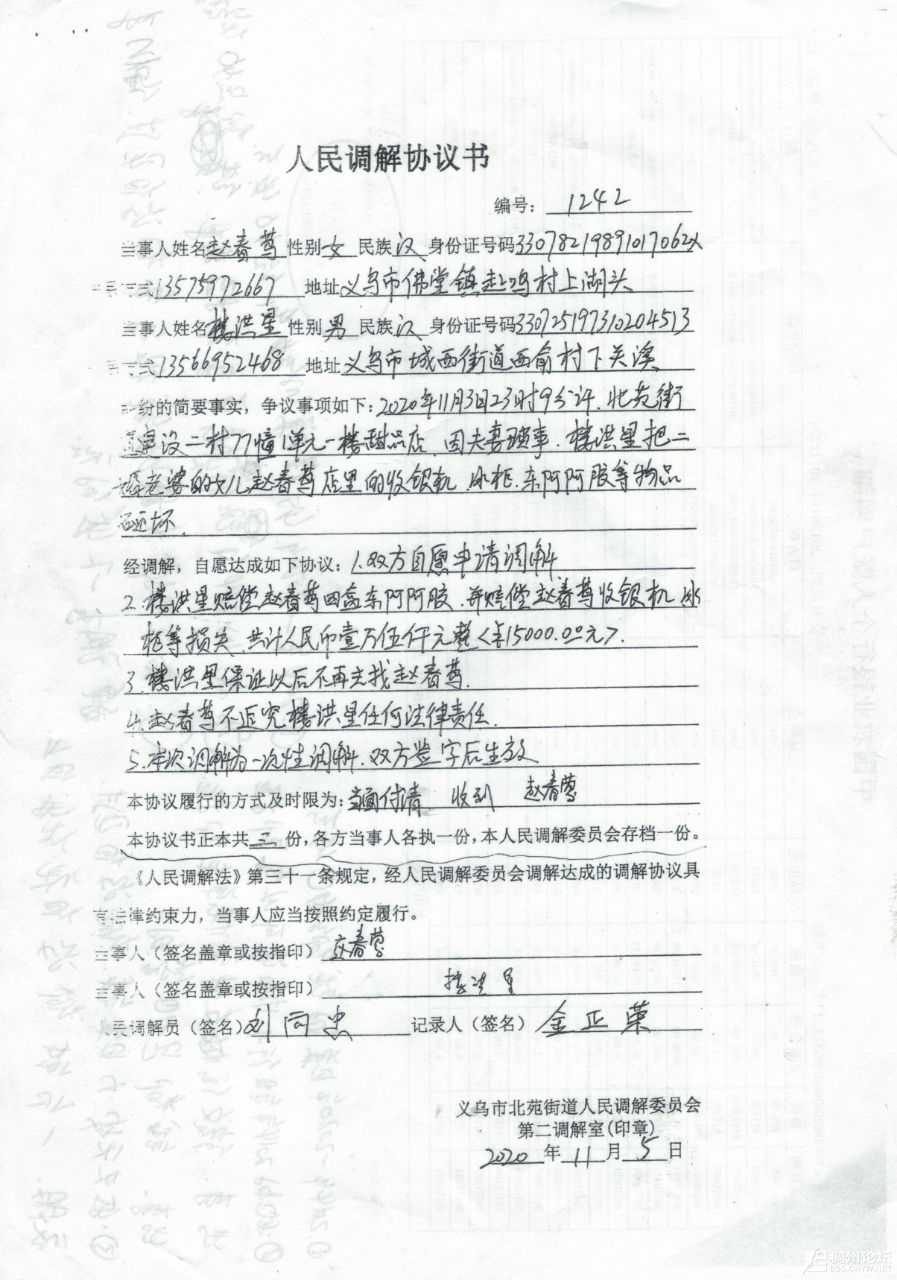 人民调解协议书
编号: 1242
当事人姓名赵春莺 性别女 民族汉 身份证号码33078219891017062X
方式13575972667 地址义乌市佛堂镇起鸣村上湖头
当事人姓名楼洪星 性别男 民族汉 身份证号码330725197310204513
方式13566952468 地址义乌市城西街道西俞村下关溪
纷的简要事实，争议事项如下：2020年11月3日23时9分许.北苑街
道建设二村77幢1单元一楼甜品店.因夫妻琐事.楼洪星把二
婚老婆的女儿赵春莺店里的收银机.冰柜.东阿阿胶等物品
砸坏.
经调解，自愿达成如下协议：1.双方自愿申请调解.
2.楼洪星赔偿赵春莺四盒东阿阿胶.并赔偿赵春莺收银机.冰
柜等损失.共计人民币壹万伍仟元整<¥15000.00元>.
3.楼洪星保证以后不再去找赵春莺.
4.赵春莺不追究楼洪星任何法律责任.
5.本次调解为一次性调解.双方签字后生效
本协议履行的方式及时限为：当面付清 收到 赵春莺
本协议书正本共三份，各方当事人各执一份，本人民调解委员会存档一份。
《人民调解法》第三十一条规定，经人民调解委员会调解达成的调解协议具
有法律约束力，当事人应当按照约定履行。
当事人（签名盖章或按指印）赵春莺
当事人（签名盖章或按指印） 楼洪星
人民调解员（签名）刘同忠 记录人（签名）金正荣
义乌市北苑街道人民调解委员会
第二调解室(印章)
2020 年 11 月 5 日
稠州论坛
BBS.CNYW.NET